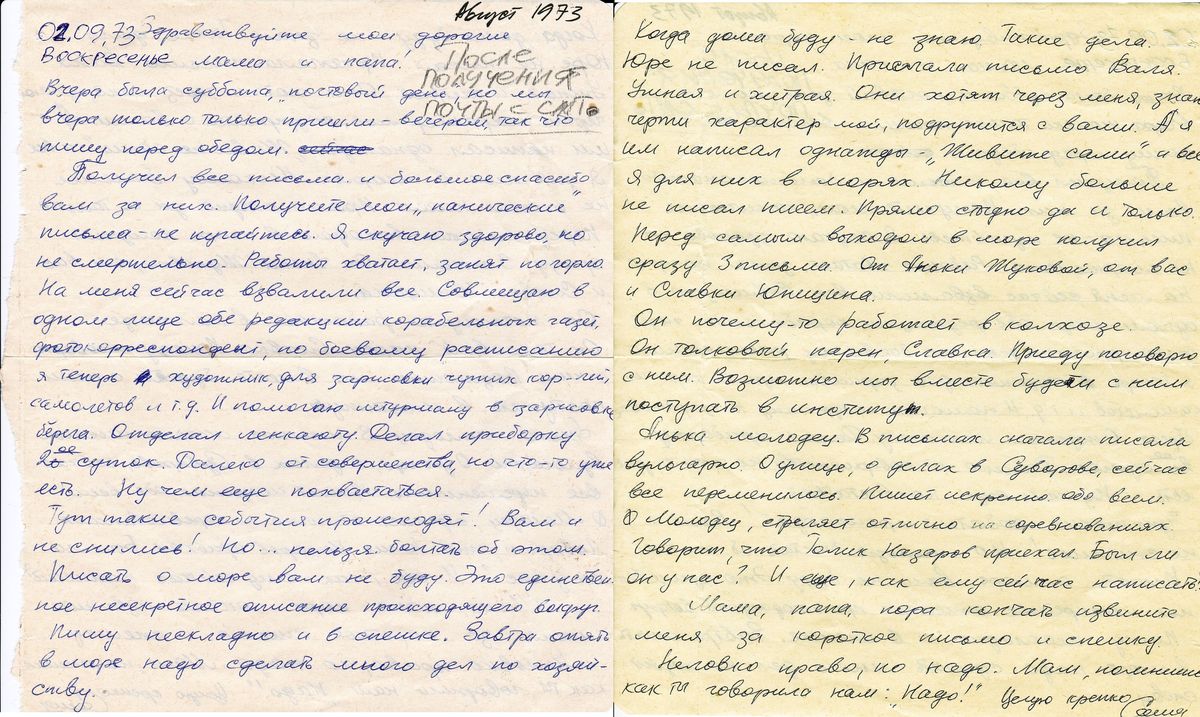 Август 1973
02.09.73 Здравствуйте мои дорогие
Воскресенье мама и папа.
После
получения
почты с СМТ.
Вчера была суббота, „почтовый день, но мы
вчера только только пришли – вечером, так что
пишу перед обедом. сейчас
Получил все письма и большое спасибо
вам за них. Получите мои „панические"
письма – не пугайтесь. Я скучаю здорово, но
не смертельно. Работы хватает, занят по горло.
На меня сейчас взвалили все. Совмещаю в
одном лице обе редакции корабельных газет,
фотокорреспондент, по боевому расписанию
я теперь художник, для зарисовки чужих кор-лей,
самолетов и т.д. И помогаю штурману в зарисовке
берега. Отделал ленкаюту. Делал приборку
2ое суток. Далеко от совершенства, но что-то уже
есть. Ну чем еще похвастаться.
Тут такие события происходят! Вам и
не снились! Но... нельзя болтать об этом.
Писать о море вам не буду. Это единствен
ное несекретное описание происходящего вокруг.
Пишу нескладно и в спешке. Завтра опять
в море надо сделать много дел по хозяй-
ству.
Когда дома буду не знаю. Такие дела.
Юре не писал. Прислала письмо Валя.
Умная и хитрая. Они хотят через меня, зная
черты характер мой, подружится с вами. А я
им написал однажды – „Живите сами" и все
я для них в морях. Никому больше
не писал писем. Прямо стыдно да и только.
Перед самым выходом в море получил
сразу 3 письма. От Аньки Жуковой, от вас
и Славки Юницина.
Он почему-то работает в колхозе.
Он толковый парен, Славка. Приеду поговорю
с ним. Возможно мы вместе будем с ним
поступать в институт.
Анька молодец. В письмах сначали писала
вульгарно. О улице, о делах в Суворове, сейчас
все переменилось. Пишет искренно обо всем.
Молодец, стреляет отлично на соревнованиях.
Говорит, что Толик Назаров приехал. Был ли
он у нас? И еще, как ему сейчас написать.
Мама, папа, пора кончать извините
меня за короткое письмо и спешку.
Неловко право, но надо. Мам, помнишь
как ты говорила нам: „Надо!" Целую крепко